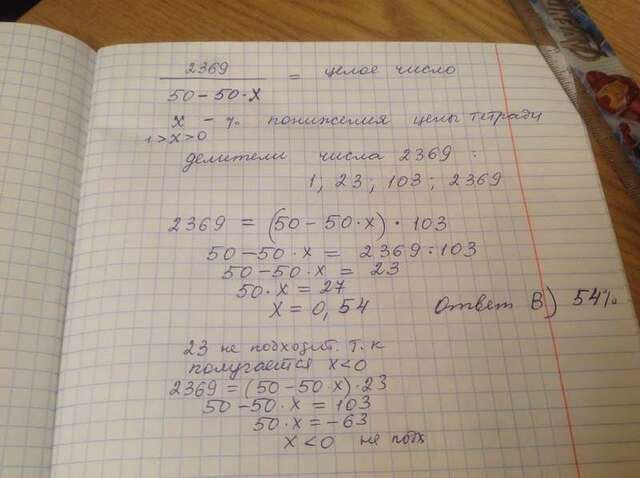 2369
50 - 50·x
= целое число
x - % понижения цены тетради
1>x>0
делители числа 2369 :
1; 23; 103; 2369
2369 = (50 - 50·x) · 103
50 - 50·x = 2369:103
50 - 50·x = 23
50·x = 27
x = 0,54
Ответ В) 54%
23 не подходит т.к
получается x<0
2369 = (50 - 50·x)·23
50 - 50·x = 103
50·x = -63
x<0 не подх